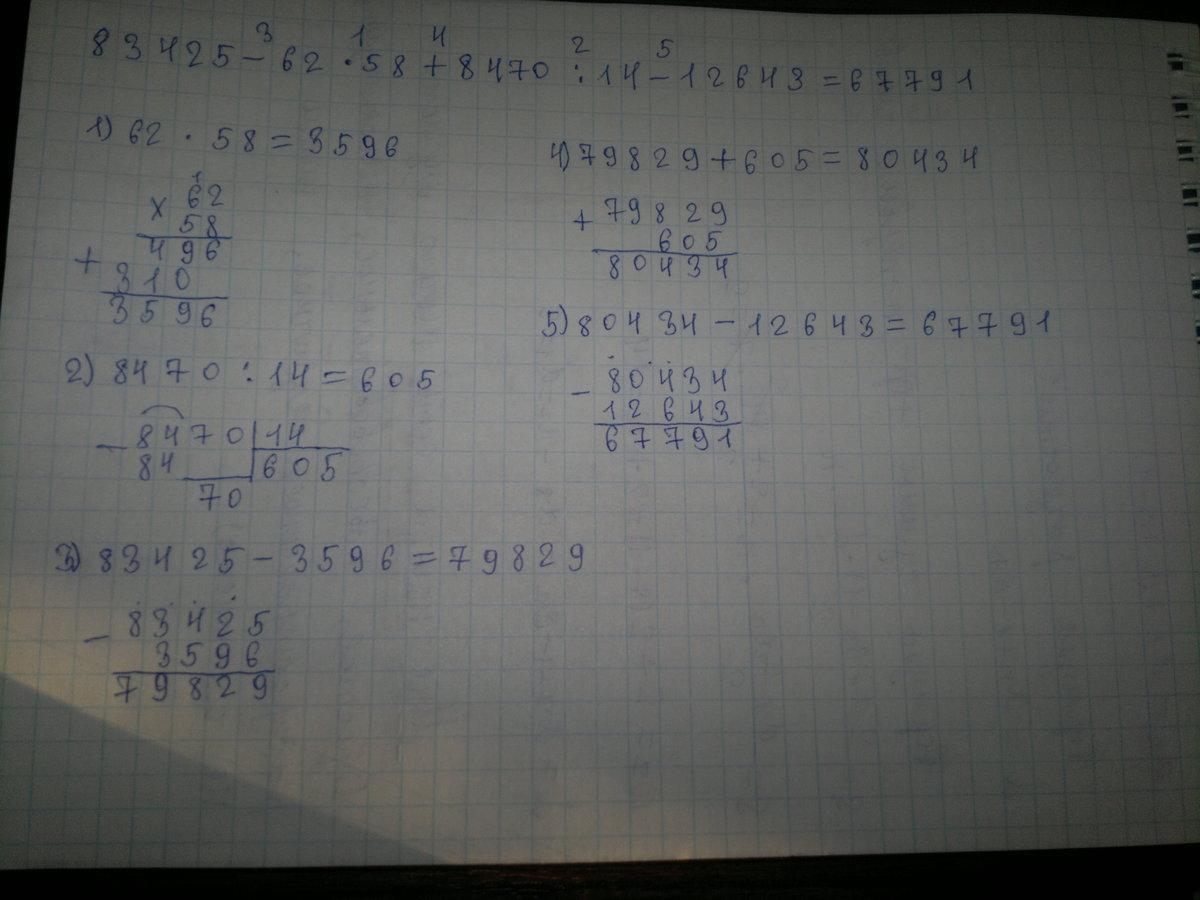 3 1 4 2 5
83425-62·58+8470:14-12643=67791
1) 62·58=3596
1
× 62
58
+ 496
310
3596
2) 8470:14=605
- 8470 14
84 605
70
3) 83425-3596=79829
- 83425
3596
79829
4) 79829+605=80434
+ 79829
605
80434
5) 80434-12643=67791
- 80434
12643
67791